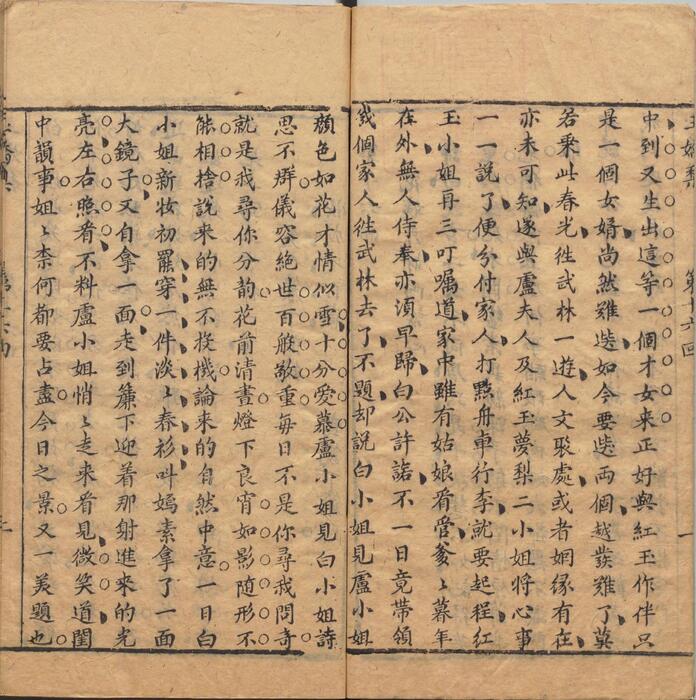 中到又生出這等一個才女来正好與紅玉作伴只
是一個女婿尚然難選如今要選両個越發難了莫
若乘此春光徃武林一遊人文聚處或者姻缘有在
亦未可知遂與盧夫人及紅玉夢梨二小姐将心事
一一說了便分付家人打點舟車行李就要起程紅
玉小姐再三叮嘱道家中雖有姑娘看管爹〻暮年
在外無人侍奉亦須早歸白公許諾不一日竟帶領
幾個家人徃武林去了不題却說白小姐見盧小姐
顔色如花才情似雪十分愛慕盧小姐見白小姐詩
思不群儀容絶世百般敬重每日不是你尋我問竒
就是我尋你分韵花前清晝燈下良宵如影随形不
能相捨說来的無不投機論来的自然中意一日白
小姐新妝初罷穿一件淡〻春衫叫嫣素拿了一面
大鏡子又自拿一面走到簾下迎着那射進来的光
亮左右照看不料盧小姐悄〻走来看見微笑道閨
中韻事姐〻柰何都要占盡今日之景又一美題也